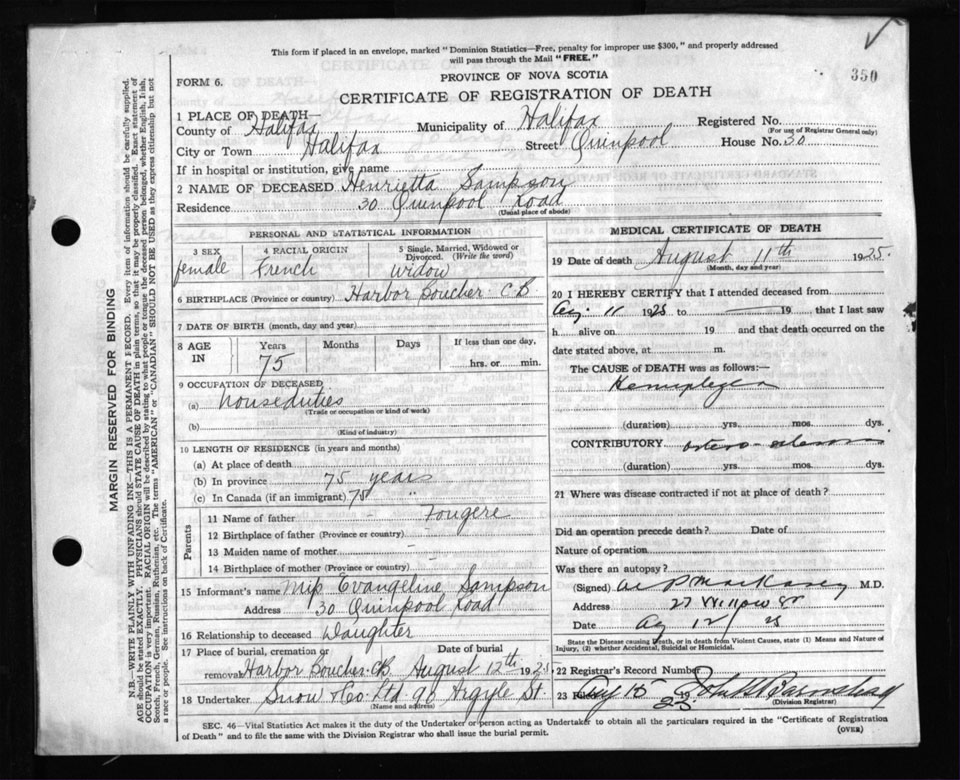 This form if placed in an envelope, marked "Dominion Statistics—Free, penalty for improper use $300," and properly addressed
will pass through the Mail "FREE."
350
FORM 6.
PROVINCE OF NOVA SCOTIA
CERTIFICATE OF REGISTRATION OF DEATH
1 PLACE OF DEATH—
County of Halifax Municipality of Halifax Registered No.
(For use of Registrar General only)
City or Town Halifax Street Quinpool House No. 30
If in hospital or institution, give name
2 NAME OF DECEASED Henrietta Sampson
Residence 30 Quinpool Road
(Usual place of abode)
PERSONAL AND STATISTICAL INFORMATION
3 SEX 4 RACIAL ORIGIN 5 Single, Married, Widowed or Divorced. (Write the word)
female French widow
6 BIRTHPLACE (Province or country) Harbor Boucher C.B.
7 DATE OF BIRTH (month, day and year)
8 AGE IN Years Months Days If less than one day,
75 hrs. or min.
9 OCCUPATION OF DECEASED
(a) houseduties
(Trade or occupation or kind of work)
(b)
(Kind of industry)
10 LENGTH OF RESIDENCE (in years and months)
(a) At place of death
(b) In province 75 years
(c) In Canada (if an immigrant) 75 "
Parents
11 Name of father Fougere
12 Birthplace of father (Province or country)
13 Maiden name of mother -
14 Birthplace of mother (Province or country) -
15 Informant's name Miss Evangeline Sampson
Address 30 Quinpool Road
16 Relationship to deceased Daughter
17 Place of burial, cremation or removal Date of burial
Harbor Boucher C.B. August 12th 1925
18 Undertaker Snow & Co. Ltd 90 Argyle St
(Name and address)
MEDICAL CERTIFICATE OF DEATH
19 Date of death August 11th 1925.
(Month, day and year)
20 I HEREBY CERTIFY that I attended deceased from
Ag. 11 1925 to — 19 that I last saw
h alive on 19 and that death occurred on
date stated above, at m.
The CAUSE of DEATH was as follows:—
Hemiplegia
(duration) yrs. mos. dys.
CONTRIBUTORY
(duration) yrs. mos. dys.
21 Where was disease contracted if not at place of death?
Did an operation precede death? Date of
Nature of operation
Was there an autopsy?
(Signed) M.D.
Address 27 Willow St
Date Ag 12/25
State the Disease causing Death, or in death from Violent Causes, state (1) Means and Nature of
Injury, (2) whether Accidental, Suicidal or Homicidal.
22 Registrar's Record Number
23 Filed Aug 15 1925
(Division Registrar)
SEC. 46—Vital Statistics Act makes it the duty of the Undertaker or person acting as Undertaker to obtain all the particulars required in the "Certificate of Registration
of Death" and to file the same with the Division Registrar who shall issue the burial permit.
(OVER)
MARGIN RESERVED FOR BINDING
N.B.—WRITE PLAINLY WITH UNFADING INK—THIS IS A PERMANENT RECORD. Every item of information should be carefully supplied.
AGE should be stated EXACTLY. PHYSICIANS should STATE CAUSE OF DEATH in plain terms, so that it may be properly classified. Exact statement of
OCCUPATION is very important. RACIAL ORIGIN will be described by stating to what people or tongue the deceased person belonged, whether English, Irish,
Scotch, French, German, Russian, Ruthenian, etc. The terms "AMERICAN" or "CANADIAN" SHOULD NOT BE USED as they express citizenship but not
a race or people. See instructions on back of Certificate.